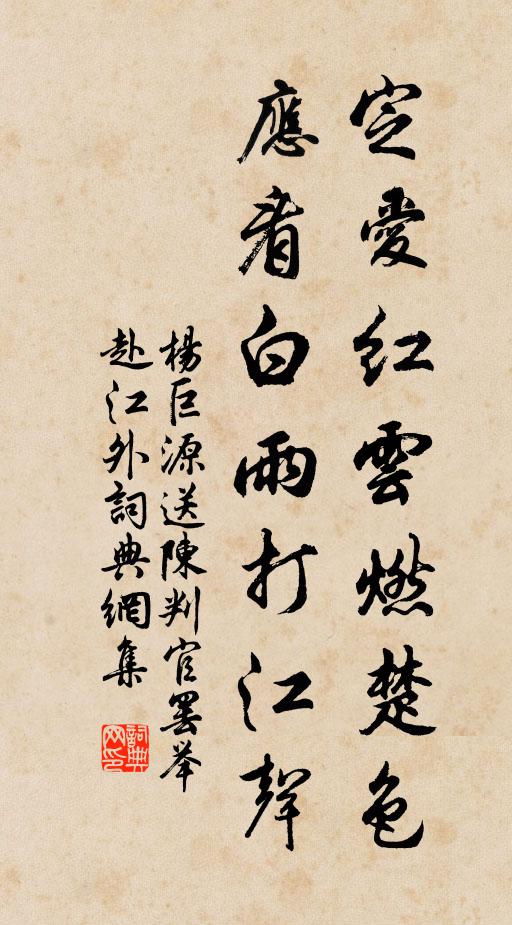 定愛紅雲燃楚色
應看白雨打江聲
楊巨源送陳判官罷舉
赴江外詞典網集
詞典网印